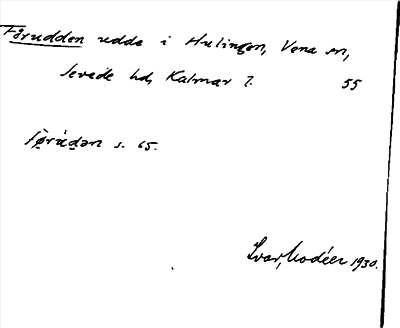 Fårudden udde i Hulingen, Vena sn,
Sevede hd, Kalmar l. 55
s. 65.
Ivar Modéer 1930.